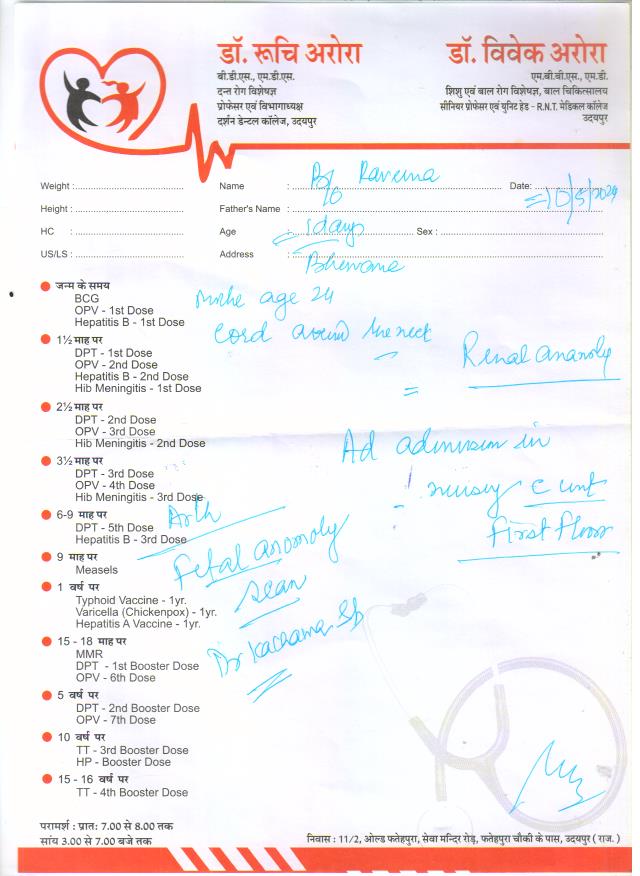 डॉ. रूचि अरोरा
बी.डी.एस., एम.डी.एस.
दन्त रोग विशेषज्ञ
प्रोफेसर एवं विभागाध्यक्ष
दर्शन डेन्टल कॉलेज, उदयपुर
डॉ. विवेक अरोरा
एम.बी.बी.एस., एम.डी.
शिशु एवं बाल रोग विशेषज्ञ, बाल चिकित्सालय
सीनियर प्रोफेसर एवं युनिट हेड - R.N.T. मेडिकल कॉलेज
उदयपुर
Weight : Name : B/o Raveena Date: 10/5/2024
Height : Father's Name :
HC : Age : 1 days Sex :
US/LS : Address :
age 24
cord around the neck
Renal anamoly
Ad admission in
unit
First floor
Fetal anomoly
scan
जन्म के समय
BCG
OPV - 1st Dose
Hepatitis B - 1st Dose
1½ माह पर
DPT - 1st Dose
OPV - 2nd Dose
Hepatitis B - 2nd Dose
Hib Meningitis - 1st Dose
2½ माह पर
DPT - 2nd Dose
OPV - 3rd Dose
Hib Meningitis - 2nd Dose
3½ माह पर
DPT - 3rd Dose
OPV - 4th Dose
Hib Meningitis - 3rd Dose
6-9 माह पर
DPT - 5th Dose
Hepatitis B - 3rd Dose
9 माह पर
Measels
1 वर्ष पर
Typhoid Vaccine - 1yr.
Varicella (Chickenpox) - 1yr.
Hepatitis A Vaccine - 1yr.
15 - 18 माह पर
MMR
DPT - 1st Booster Dose
OPV - 6th Dose
5 वर्ष पर
DPT - 2nd Booster Dose
OPV - 7th Dose
10 वर्ष पर
TT - 3rd Booster Dose
HP - Booster Dose
15 - 16 वर्ष पर
TT - 4th Booster Dose
परामर्श : प्रातः 7.00 से 8.00 तक
सांय 3.00 से 7.00 बजे तक
निवास : 11/2, ओल्ड फतेहपुरा, सेवा मन्दिर रोड़, फतेहपुरा चौकी के पास, उदयपुर ( राज. )